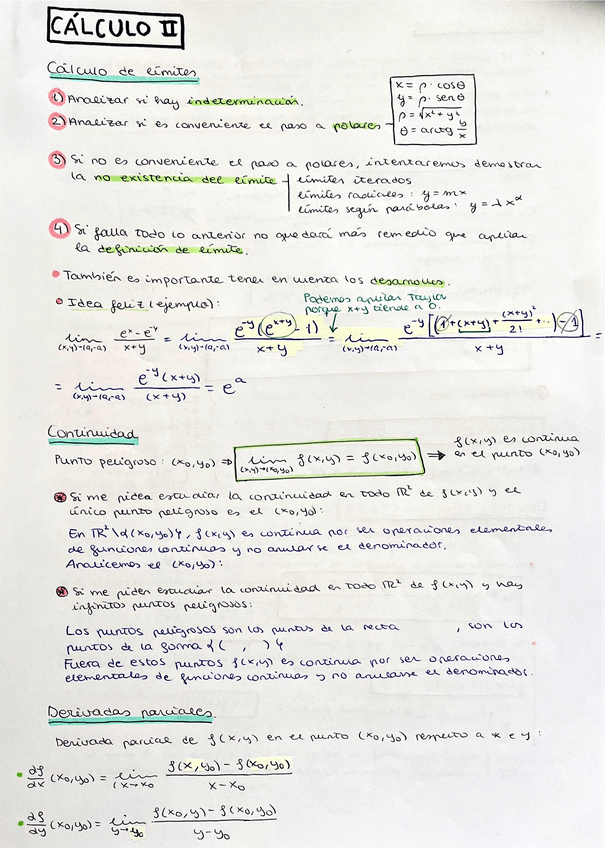 CÁLCULO II
Cálculo de límites
1) Analizar si hay indeterminación.
2) Analizar si es conveniente el paso a polares
x = ρ · cosθ
y = ρ · senθ
ρ = √(x² + y²)
θ = arctg y/x
3) Si no es conveniente el paso a polares, intentaremos demostrar
la no existencia del límite
límites iterados
límites radicales: y = mx
límites según parábolas: y = λx^α
4) Si falla todo lo anterior no quedará más remedio que aplicar
la definición de límite.
• También es importante tener en cuenta los desarrollos.
• Idea feliz (ejemplo):
Podemos aplicar Taylor
porque x+y tiende a 0.
lim (x,y)→(a,-a) (e^x − e^-y)/(x+y) = lim (x,y)→(a,-a) e^-y (e^(x+y) − 1)/(x+y) = lim (x,y)→(a,-a) e^-y [(1 + (x+y) + (x+y)²/2! + ...) − 1]/(x+y) =
= lim (x,y)→(a,-a) e^-y (x+y)/(x+y) = e^a
Continuidad
Punto peligroso: (x₀,y₀) ⇒ lim (x,y)→(x₀,y₀) f(x,y) = f(x₀,y₀) → f(x,y) es continua
en el punto (x₀,y₀)
* Si me piden estudiar la continuidad en todo ℝ² de f(x,y) y el
único punto peligroso es el (x₀,y₀):
En ℝ² \ {(x₀,y₀)}, f(x,y) es continua por ser operaciones elementales
de funciones continuas y no anularse el denominador.
Analicemos el (x₀,y₀):
* Si me piden estudiar la continuidad en todo ℝ² de f(x,y) y hay
infinitos puntos peligrosos:
Los puntos peligrosos son los puntos de la recta , son los
puntos de la forma {( , )}
Fuera de estos puntos f(x,y) es continua por ser operaciones
elementales de funciones continuas y no anularse el denominador.
Derivadas parciales.
Derivada parcial de f(x,y) en el punto (x₀,y₀) respecto a x e y:
• ∂f/∂x (x₀,y₀) = lim x→x₀ (f(x,y₀) − f(x₀,y₀))/(x − x₀)
• ∂f/∂y (x₀,y₀) = lim y→y₀ (f(x₀,y) − f(x₀,y₀))/(y − y₀)